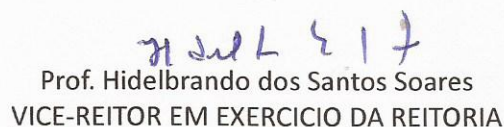 Prof. Hidelbrando dos Santos Soares
VICE-REITOR EM EXERCICIO DA REITORIA